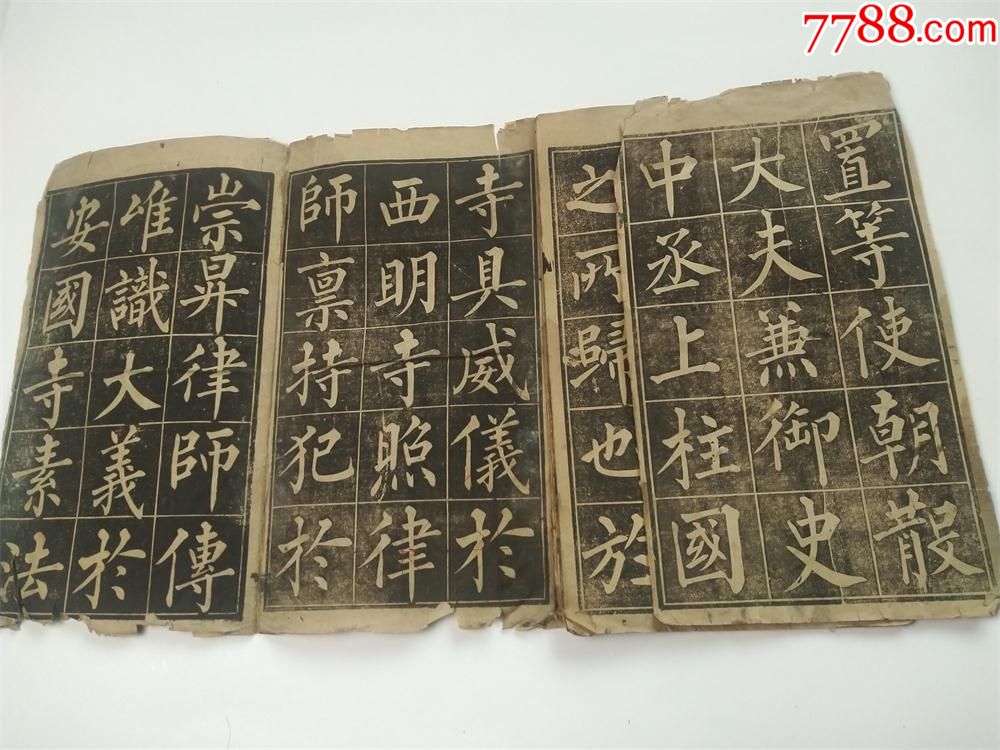 7788.com
置等使朝散
大夫兼御史
中丞上柱國
之所歸也於
寺具威儀於
西明寺照律
師禀持犯於
崇昇律師傳
唯識大義於
安國寺素法